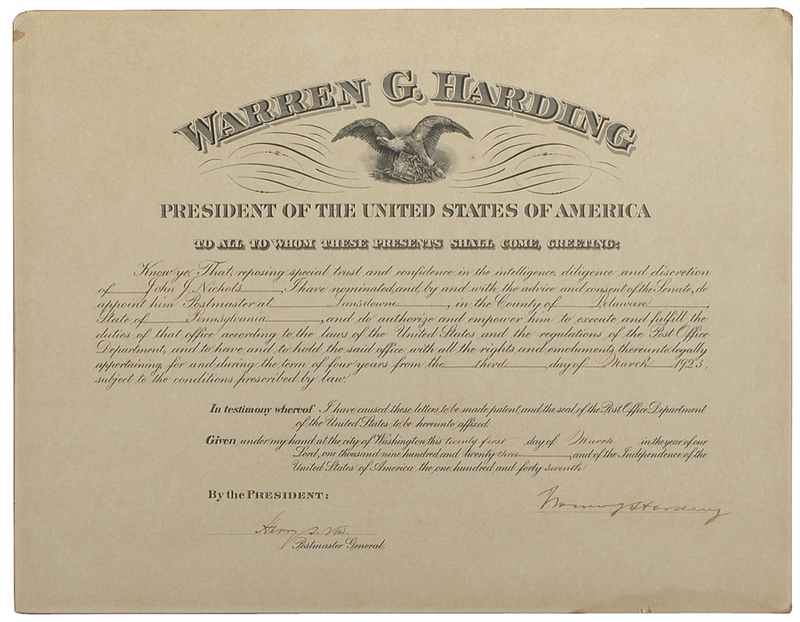 WARREN G. HARDING
PRESIDENT OF THE UNITED STATES OF AMERICA
TO ALL TO WHOM THESE PRESENTS SHALL COME, GREETING:
Know ye, That, reposing special trust and confidence in the intelligence, diligence and discretion
of John J. Nichols, I have nominated, and, by and with the advice and consent of the Senate, do
appoint him Postmaster at Lansdowne, in the County of Delaware,
State of Pennsylvania, and do authorize and empower him to execute and fulfill the
duties of that office according to the laws of the United States and the regulations of the Post Office
Department, and to have and to hold the said office with all the rights and emoluments thereunto legally
appertaining, for and during the term of four years from the third day of March 1923,
subject to the conditions prescribed by law.
In testimony whereof I have caused these letters to be made patent, and the seal of the Post Office Department
of the United States to be hereunto affixed.
Given under my hand at the city of Washington this twenty first day of March in the year of our
Lord, one thousand nine hundred and twenty three, and of the Independence of the
United States of America the one hundred and forty seventh
By the PRESIDENT:
Warren G Harding
Harry S. New
Postmaster General.